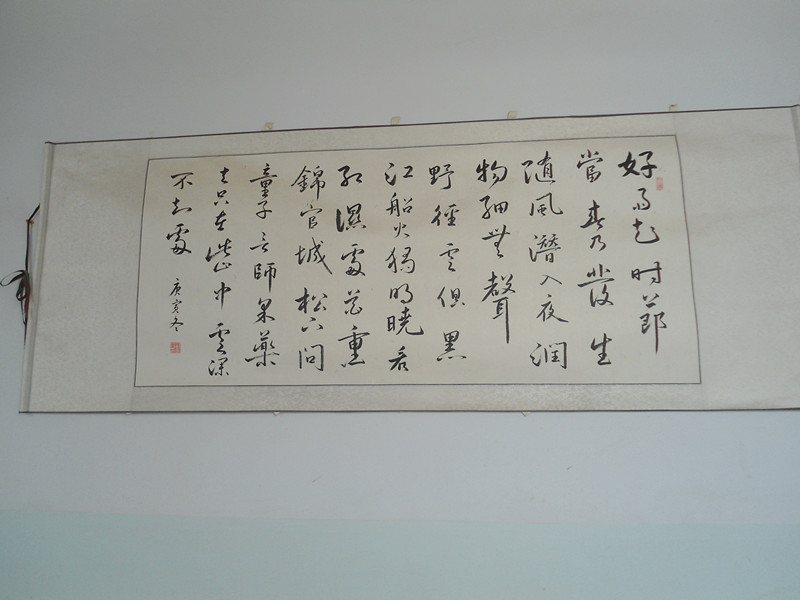 好雨知时節
當春乃發生
随風潛入夜潤
物細無聲
野徑雲俱黑
江船火獨明曉看
紅濕處花重
錦官城松下問
童子言師采藥
去只在此山中雲深
不知處
庚寅冬